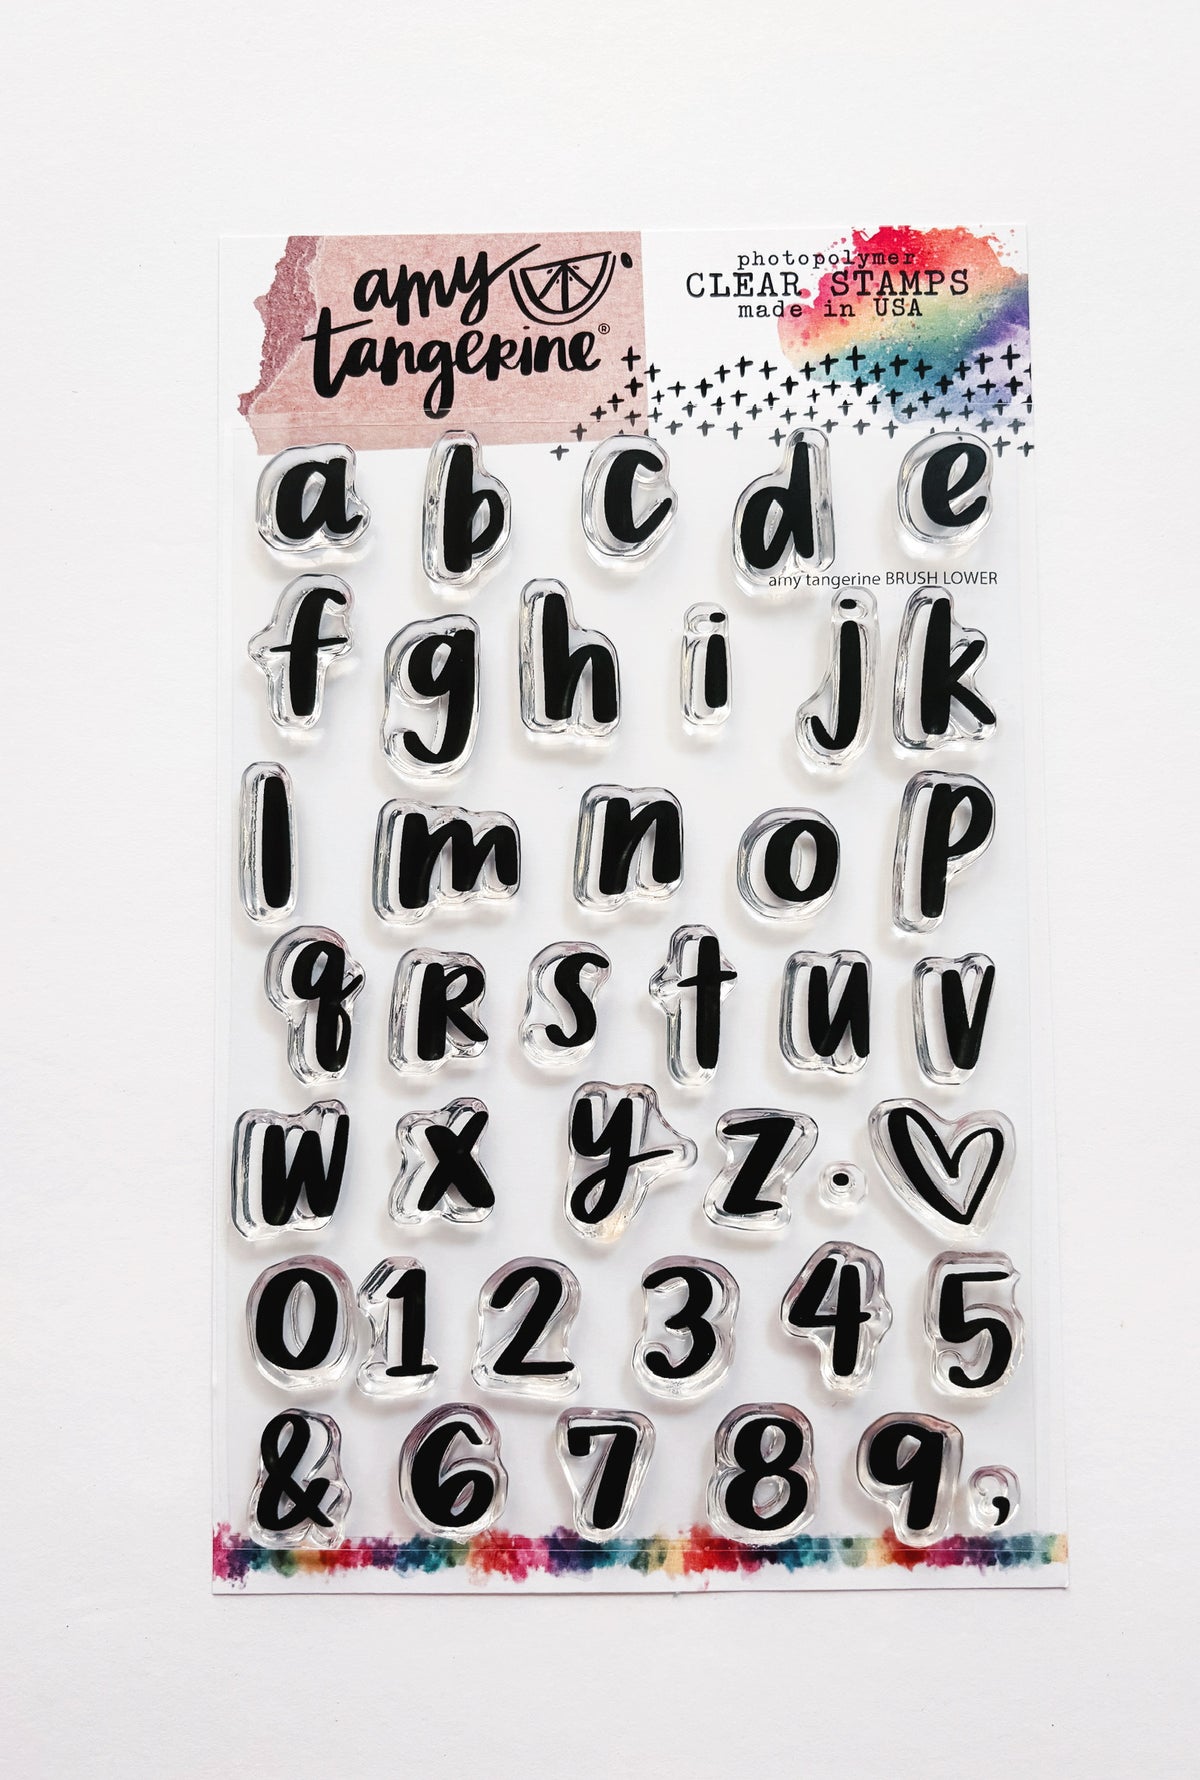 amy
tangerine®
photopolymer
CLEAR STAMPS
made in USA
a b c d e
amy tangerine BRUSH LOWER
f g h i j k
l m n o p
q r s t u v
w x y z .
0 1 2 3 4 5
& 6 7 8 9 ,